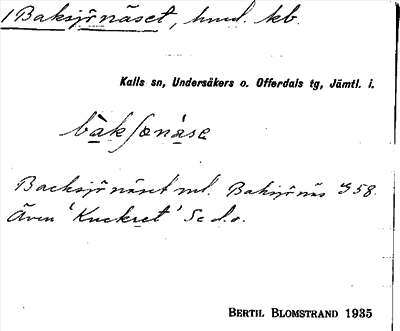 1 Baksjönäset, hmd. kb.
Kalls sn, Undersåkers o. Offerdals tg, Jämtl. i.
bakʃønäse
Backsjönäset ml. Baksjönäs 358.
Även 'Kuckret' Se d.o.
BERTIL BLOMSTRAND 1935